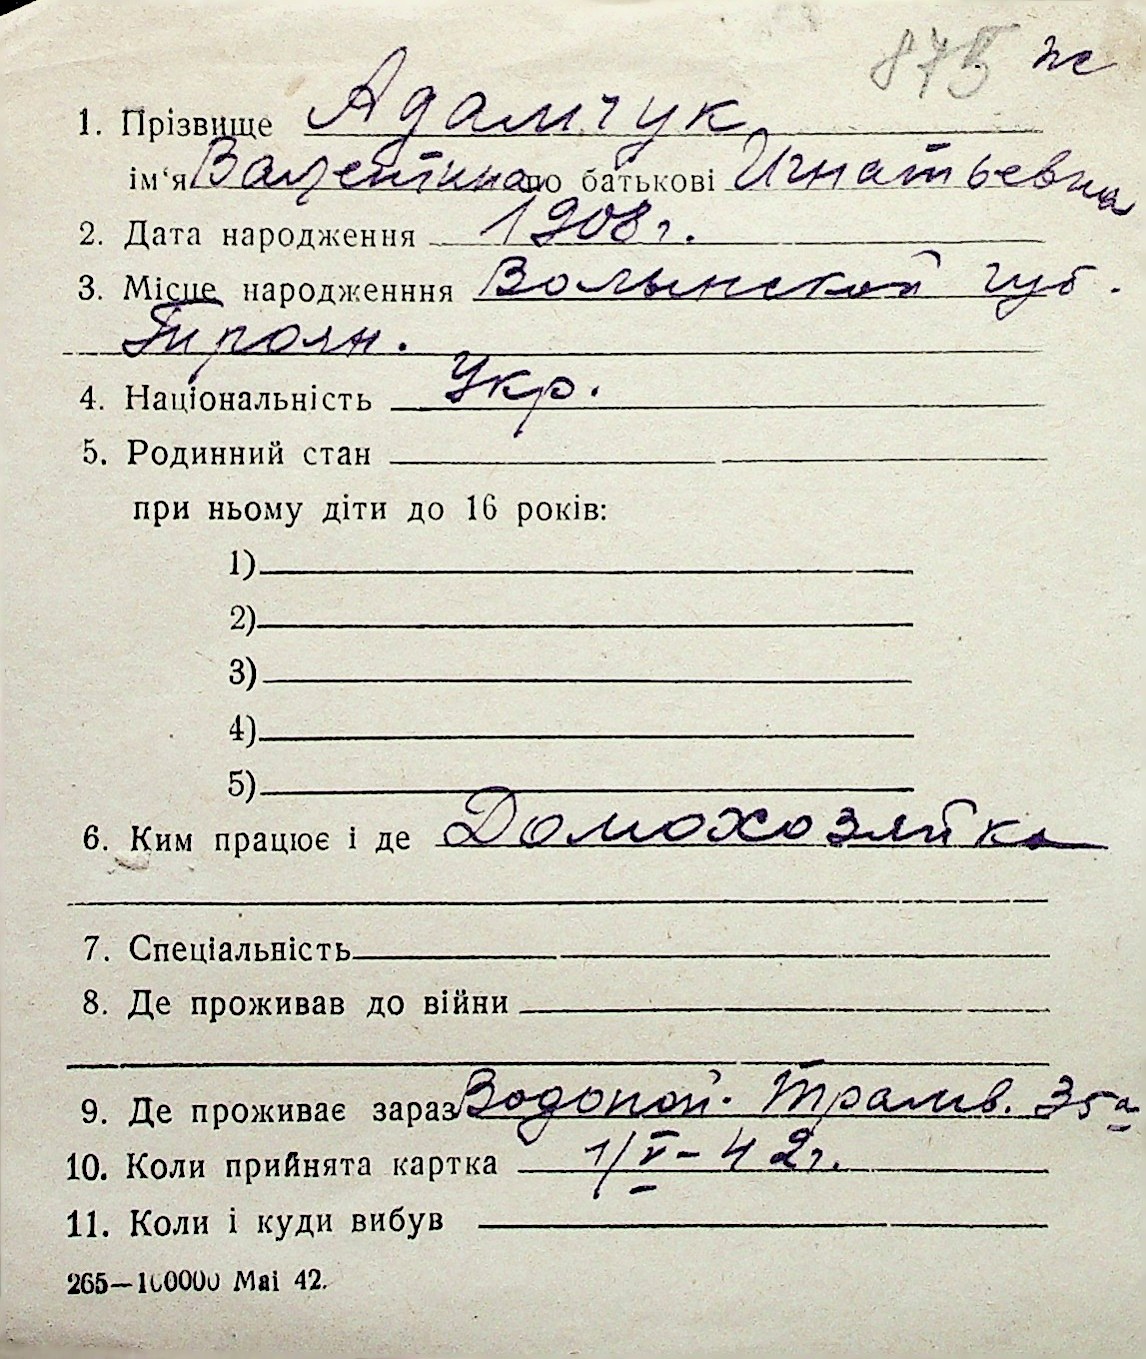 875 ж
1. Прізвище Адамчук
ім‘я Валентина по батькові Игнатьевна
2. Дата народження 1908 г.
3. Місце народженння Волынской губ.
Троян.
4. Національність Укр.
5. Родинний стан
при ньому діти до 16 років:
1)
2)
3)
4)
5)
6. Ким працює і де Домохозяйка
7. Спеціальність
8. Де проживав до війни
9. Де проживає зараз Водопой. Трамв. 35а
10. Коли прийнята картка 1/V–42 г.
11. Коли і куди вибув
265—100000 Mai 42.